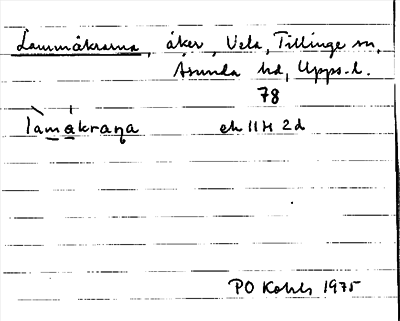 Lammåkrarna, åker, Vela, Tillinge sn,
Åsunda hd, Upps. l.
78
làmákrana ek 11H 2d
PO Kohls 1975